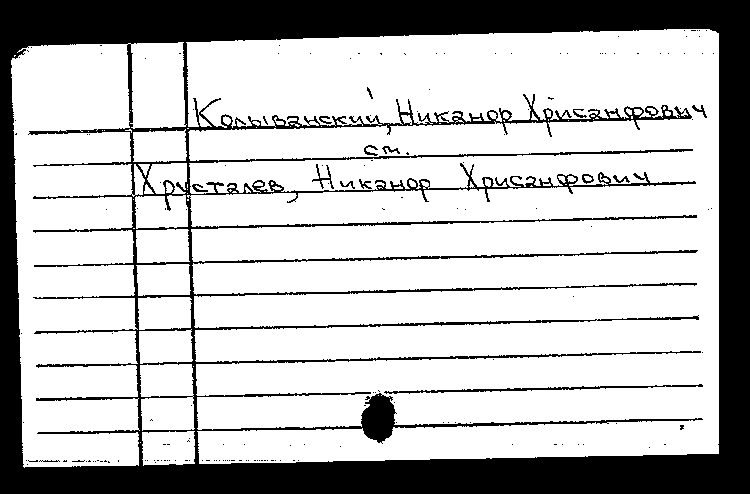 Колыванский, Никанор Хрисанфович
см.
Хрусталев, Никанор Хрисанфович